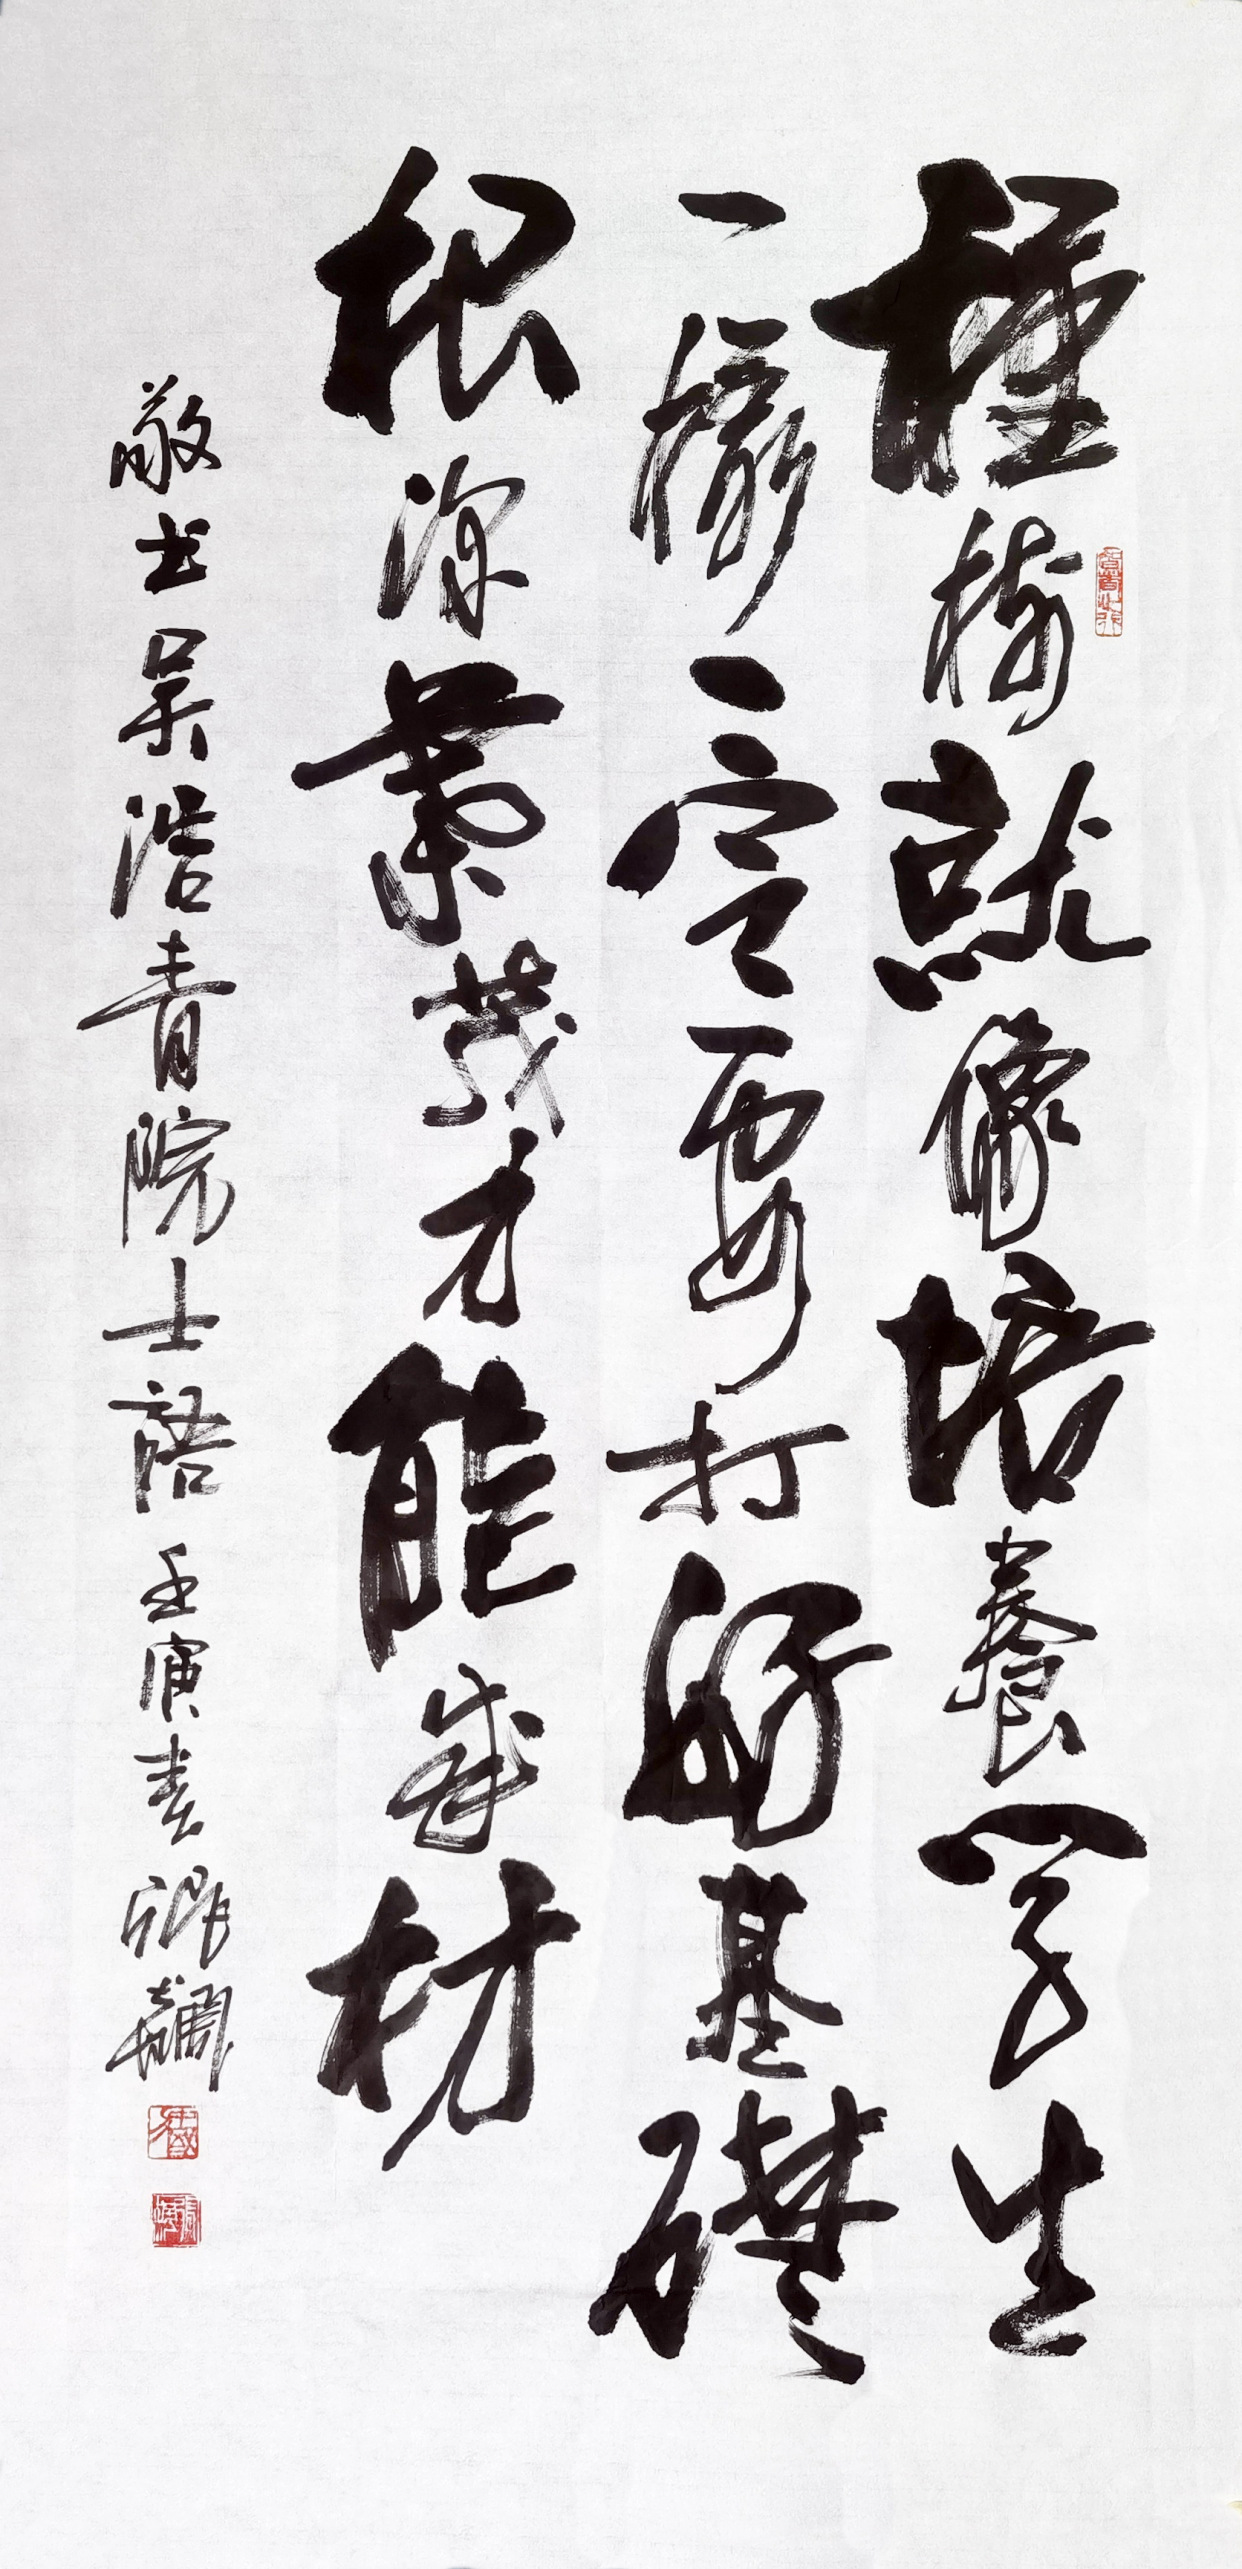 種樹就像培養学生
一樣一定要打好基礎
根深葉茂才能成材
敬书吴浩青院士語壬寅春卿